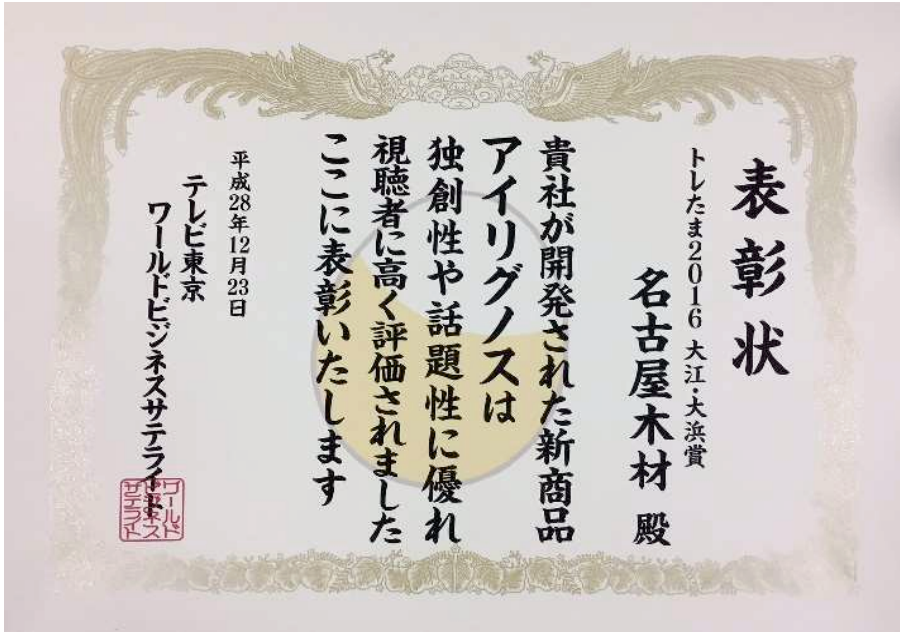 表彰状
トレたま2016 大江・大浜賞
名古屋木材 殿
貴社が開発された新商品
アイリグノスは
独創性や話題性に優れ
視聴者に高く評価されました
ここに表彰いたします
平成28年12月23日
テレビ東京
ワールドビジネスサテライト
ワールド
ビジネス
サテライト